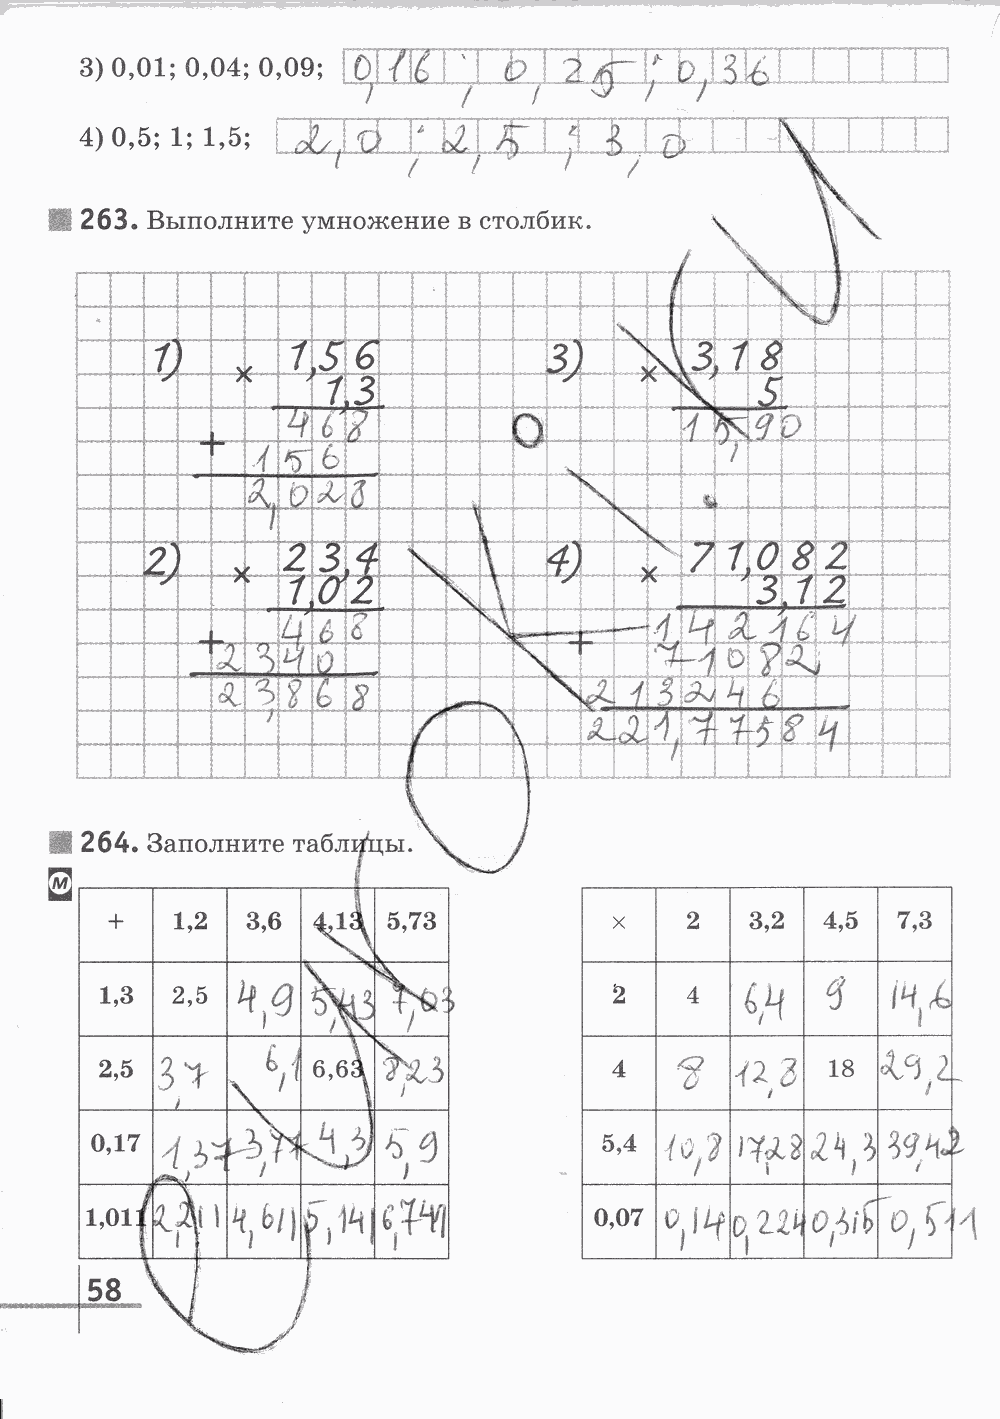 3) 0,01; 0,04; 0,09; 0,16; 0,25; 0,36
4) 0,5; 1; 1,5; 2,0; 2,5; 3,0
263. Выполните умножение в столбик.
1) × 1,56 3) × 3,18
1,3 5
468 15,90
+ 156
2,028
2) × 23,4 4) × 71,082
1,02 3,12
468 142164
+ 2340 + 71082
23,868 213246
221,77584
264. Заполните таблицы.
М
+ 1,2 3,6 4,13 5,73 × 2 3,2 4,5 7,3
1,3 2,5 4,9 5,43 7,03 2 4 6,4 9 14,6
2,5 3,7 6,1 6,63 8,23 4 8 12,8 18 29,2
0,17 1,37 3,77 4,3 5,9 5,4 10,8 17,28 24,3 39,42
1,011 2,211 4,611 5,141 6,741 0,07 0,14 0,224 0,315 0,511
58